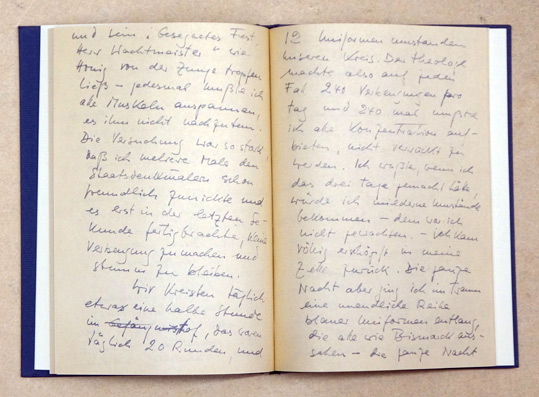 und sein „Gesegnetes Fest,
Herr Wachtmeister" wie
Honig von der Zunge tropfen
ließ – jedesmal mußte ich
alle Muskeln anspannen,
es ihm nicht nachzutun.
Die Versuchung war so stark,
daß ich mehrere Male den
Staatsdenkmälern schon
freundlich zunickte und
es erst in der letzten Se-
kunde fertigbrachte, keine
Verbeugung zu machen und
stumm zu bleiben.
Wir kreisten täglich
etwas eine halbe Stunde
im Hof, das waren
täglich 20 Runden, und
12 Uniformen umstanden
unseren Kreis. Der Theologe
machte also auf jeden
Fall 240 Verbeugungen pro
tag und 240 mal mußte
ich alle Konzentration auf-
bieten, nicht verrückt zu
werden. Ich wußte, wenn ich
das drei Tage gemacht hätte
würde ich mildernde Umstände
bekommen – dem war ich
nicht gewachsen. – Ich kam
völlig erschöpft in meine
Zelle zurück. Die ganze
Nacht aber ging ich im Traum
eine unendliche Reihe
blauer Uniformen entlang,
die alle wie Bismarck aus-
sahen – die ganze Nacht